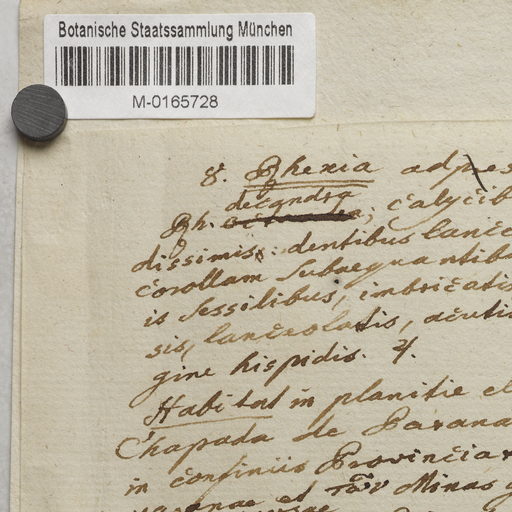 Botanische Staatssammlung München
M-0165728
8. Rhexia adpres
decandra
Rh. octandra; calycib
dissimis: dentibus lance
corollam subaequantib
is sessilibus, imbricatis
sis, lanceolatis, acuti
gine hispidis. ♃.
Habitat in planitie el
Chapada de Parana
in confiniis Provinciar
et Minas g